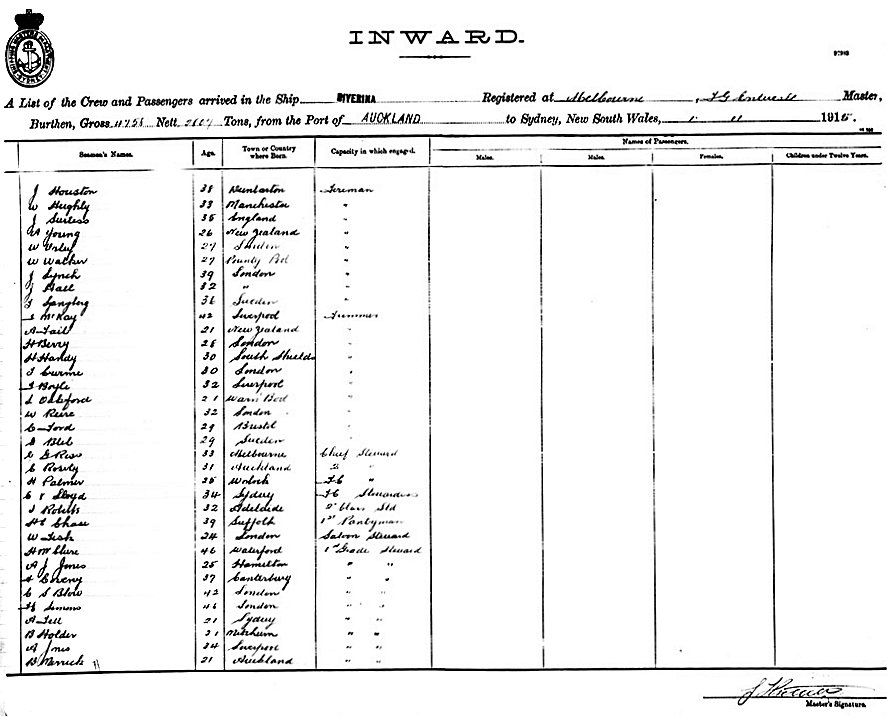 INWARD.
A List of the Crew and Passengers arrived in the Ship RIVERINA Registered at Melbourne, Master,
Burthen, Gross Nett. Tons, from the Port of AUCKLAND to Sydney, New South Wales, 1915.
Seamen's Names. Age. Town or Country where Born. Capacity in which engaged. Names of Passengers.
Males. Males. Females. Children under Twelve Years.
J Houston 38 Dunbarton Fireman
W Hughly 33 Manchester "
J Surtess 35 England "
Young 26 New Zealand "
W 27 "
W Walker 27 County "
J Lynch 39 London "
J Hall 32 " "
Langberg 36 Sweden "
McKay 42 Liverpool Trimmer
A Tail 21 New Zealand "
H Berry 28 London "
H Handy 30 South Shields "
J Curme 30 London "
J Boyle 32 Liverpool "
21 "
W 32 London "
C Ford 29 Bristol "
29 Sweden "
G Ross 33 Melbourne Chief Steward
C 31 Auckland 2 "
H Palmer 25 "
Lloyd 34 Sydney Stewardess
J Roberts 32 Adelaide
Chase 39 Suffolk 1st Pantryman
W Fisk 24 London Saloon Steward
H McClure 46 Waterford 1st Grade Steward
A J Jones 25 Hamilton " "
37 Canterbury " "
C S Blow 42 London " "
Simons 46 London " "
A Tell 21 Sydney " "
B Holder 21 " "
A Jones 34 Liverpool " "
B Merrick 21 Auckland " "
Master's Signature.